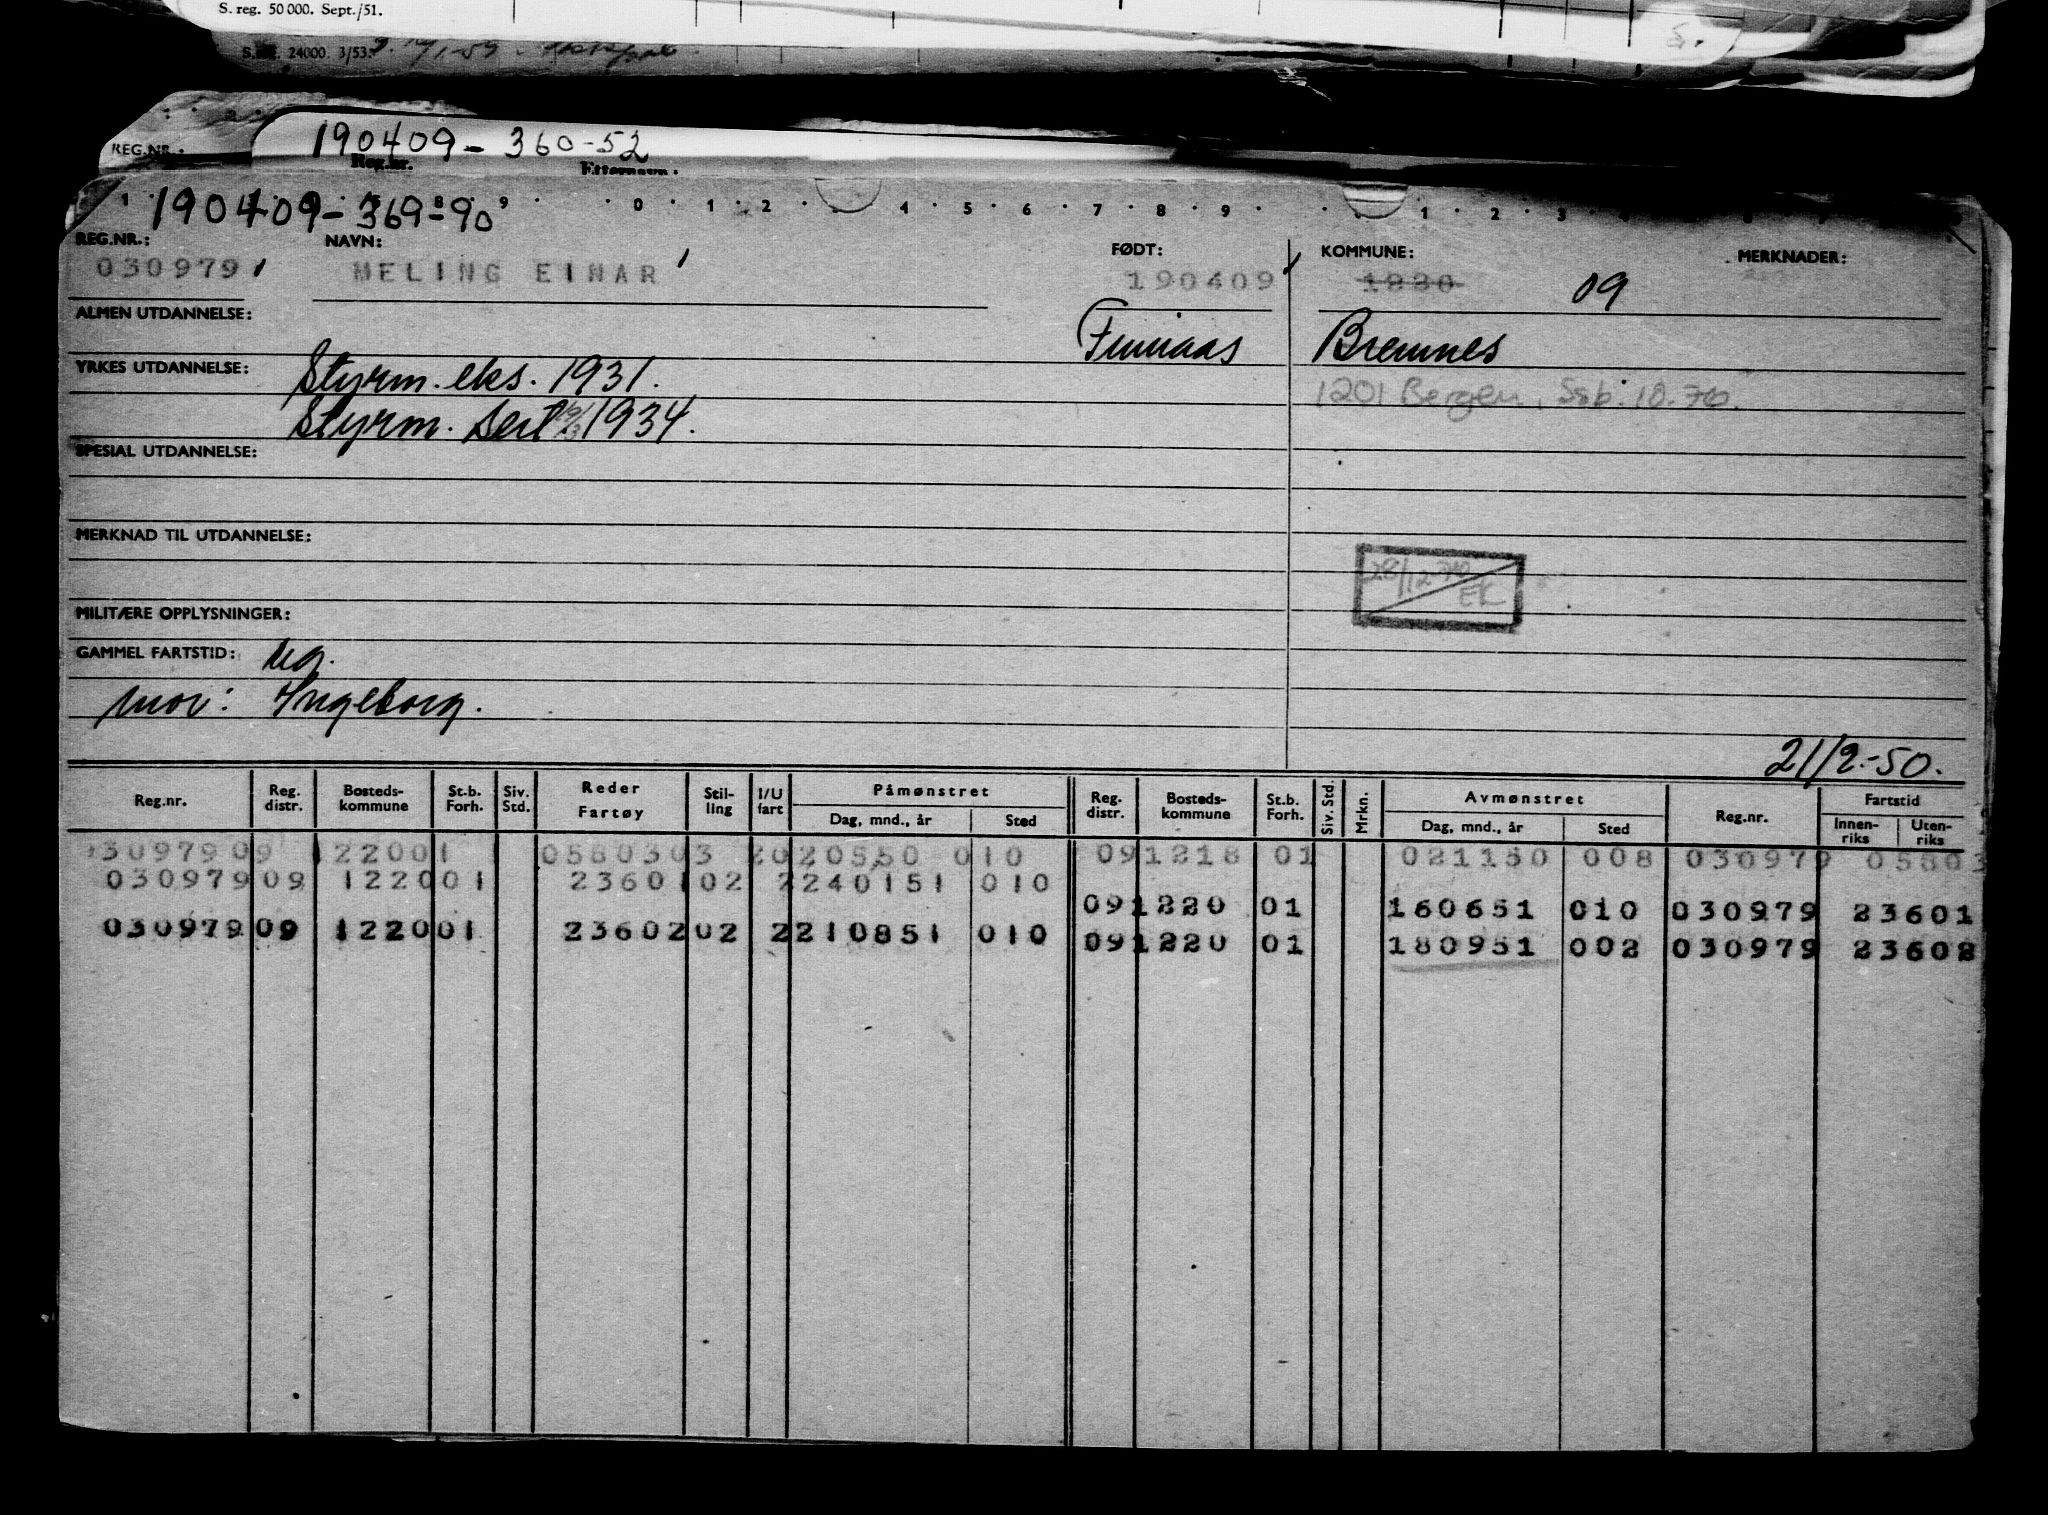 S. reg. 50 000. Sept./51.
24000. 3/53.
REG.NR.:
190409-360-52
Reg.nr. Etternavn.
190409-369-90
REG.NR.: NAVN: FØDT: KOMMUNE: MERKNADER:
030979 MELING EINAR 190409 09
ALMEN UTDANNELSE: Finnaas Bremnes
YRKES UTDANNELSE: Styrm. eks. 1931.
1201 Bergen, Ssb. 10.76.
Styrm. sert. 1934.
SPESIAL UTDANNELSE:
MERKNAD TIL UTDANNELSE:
28/12 EK
MILITÆRE OPPLYSNINGER:
GAMMEL FARTSTID: Ug.
mor: Ingeborg.
21/2.-50.
Reg.nr. Reg. distr. Bosteds-kommune St.b. Forh. Siv. Std. Reder Fartøy Stil-ling I/U fart Påmønstret Dag, mnd., år Sted Reg. distr. Bosteds-kommune St.b. Forh. Siv. Std. Mrkn. Avmønstret Dag, mnd., år Sted Reg.nr. Fartstid Innen-riks Uten-riks
030979 09 1220 01 05803 03 2 020550 010 09 1218 01 021150 008 030979 05803
030979 09 1220 01 23601 02 2 240151 010
09 1220 01 160651 010 030979 23601
030979 09 1220 01 23602 02 2 210851 010
09 1220 01 180951 002 030979 23602